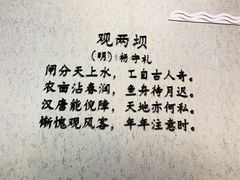 观两坝
（明）杨守礼
闸分天上水，工自古人奇。
农亩沾春润，鱼舟待月迟。
汉唐能倪障，天地亦何私。
惭愧观风客，年年注意时。